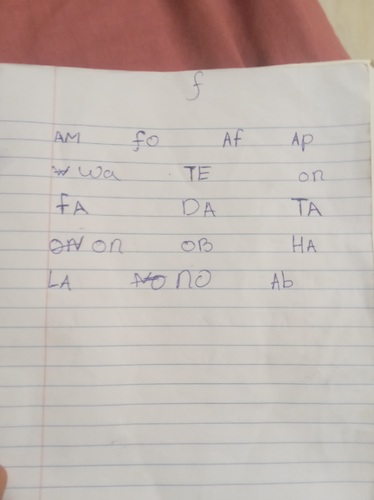 f
AM fo Af Ap
Wa TE on
fA DA TA
on OB HA
LA NO Ab